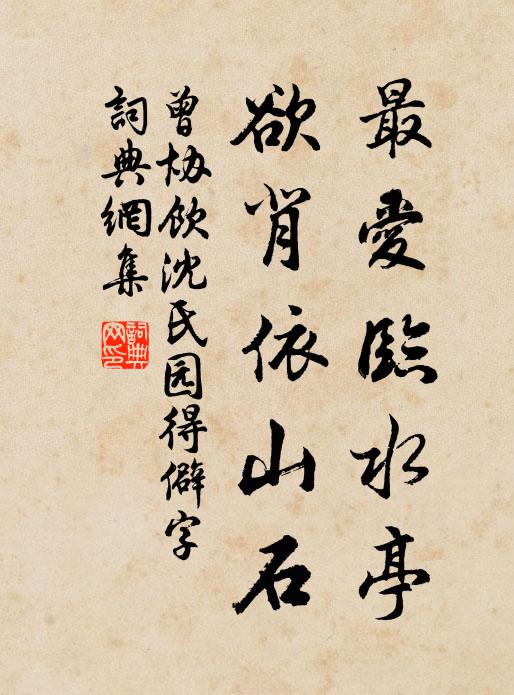 最愛臨水亭
欲肯依山石
曾协飲沈氏园得僻字
詞典網集
詞典网印